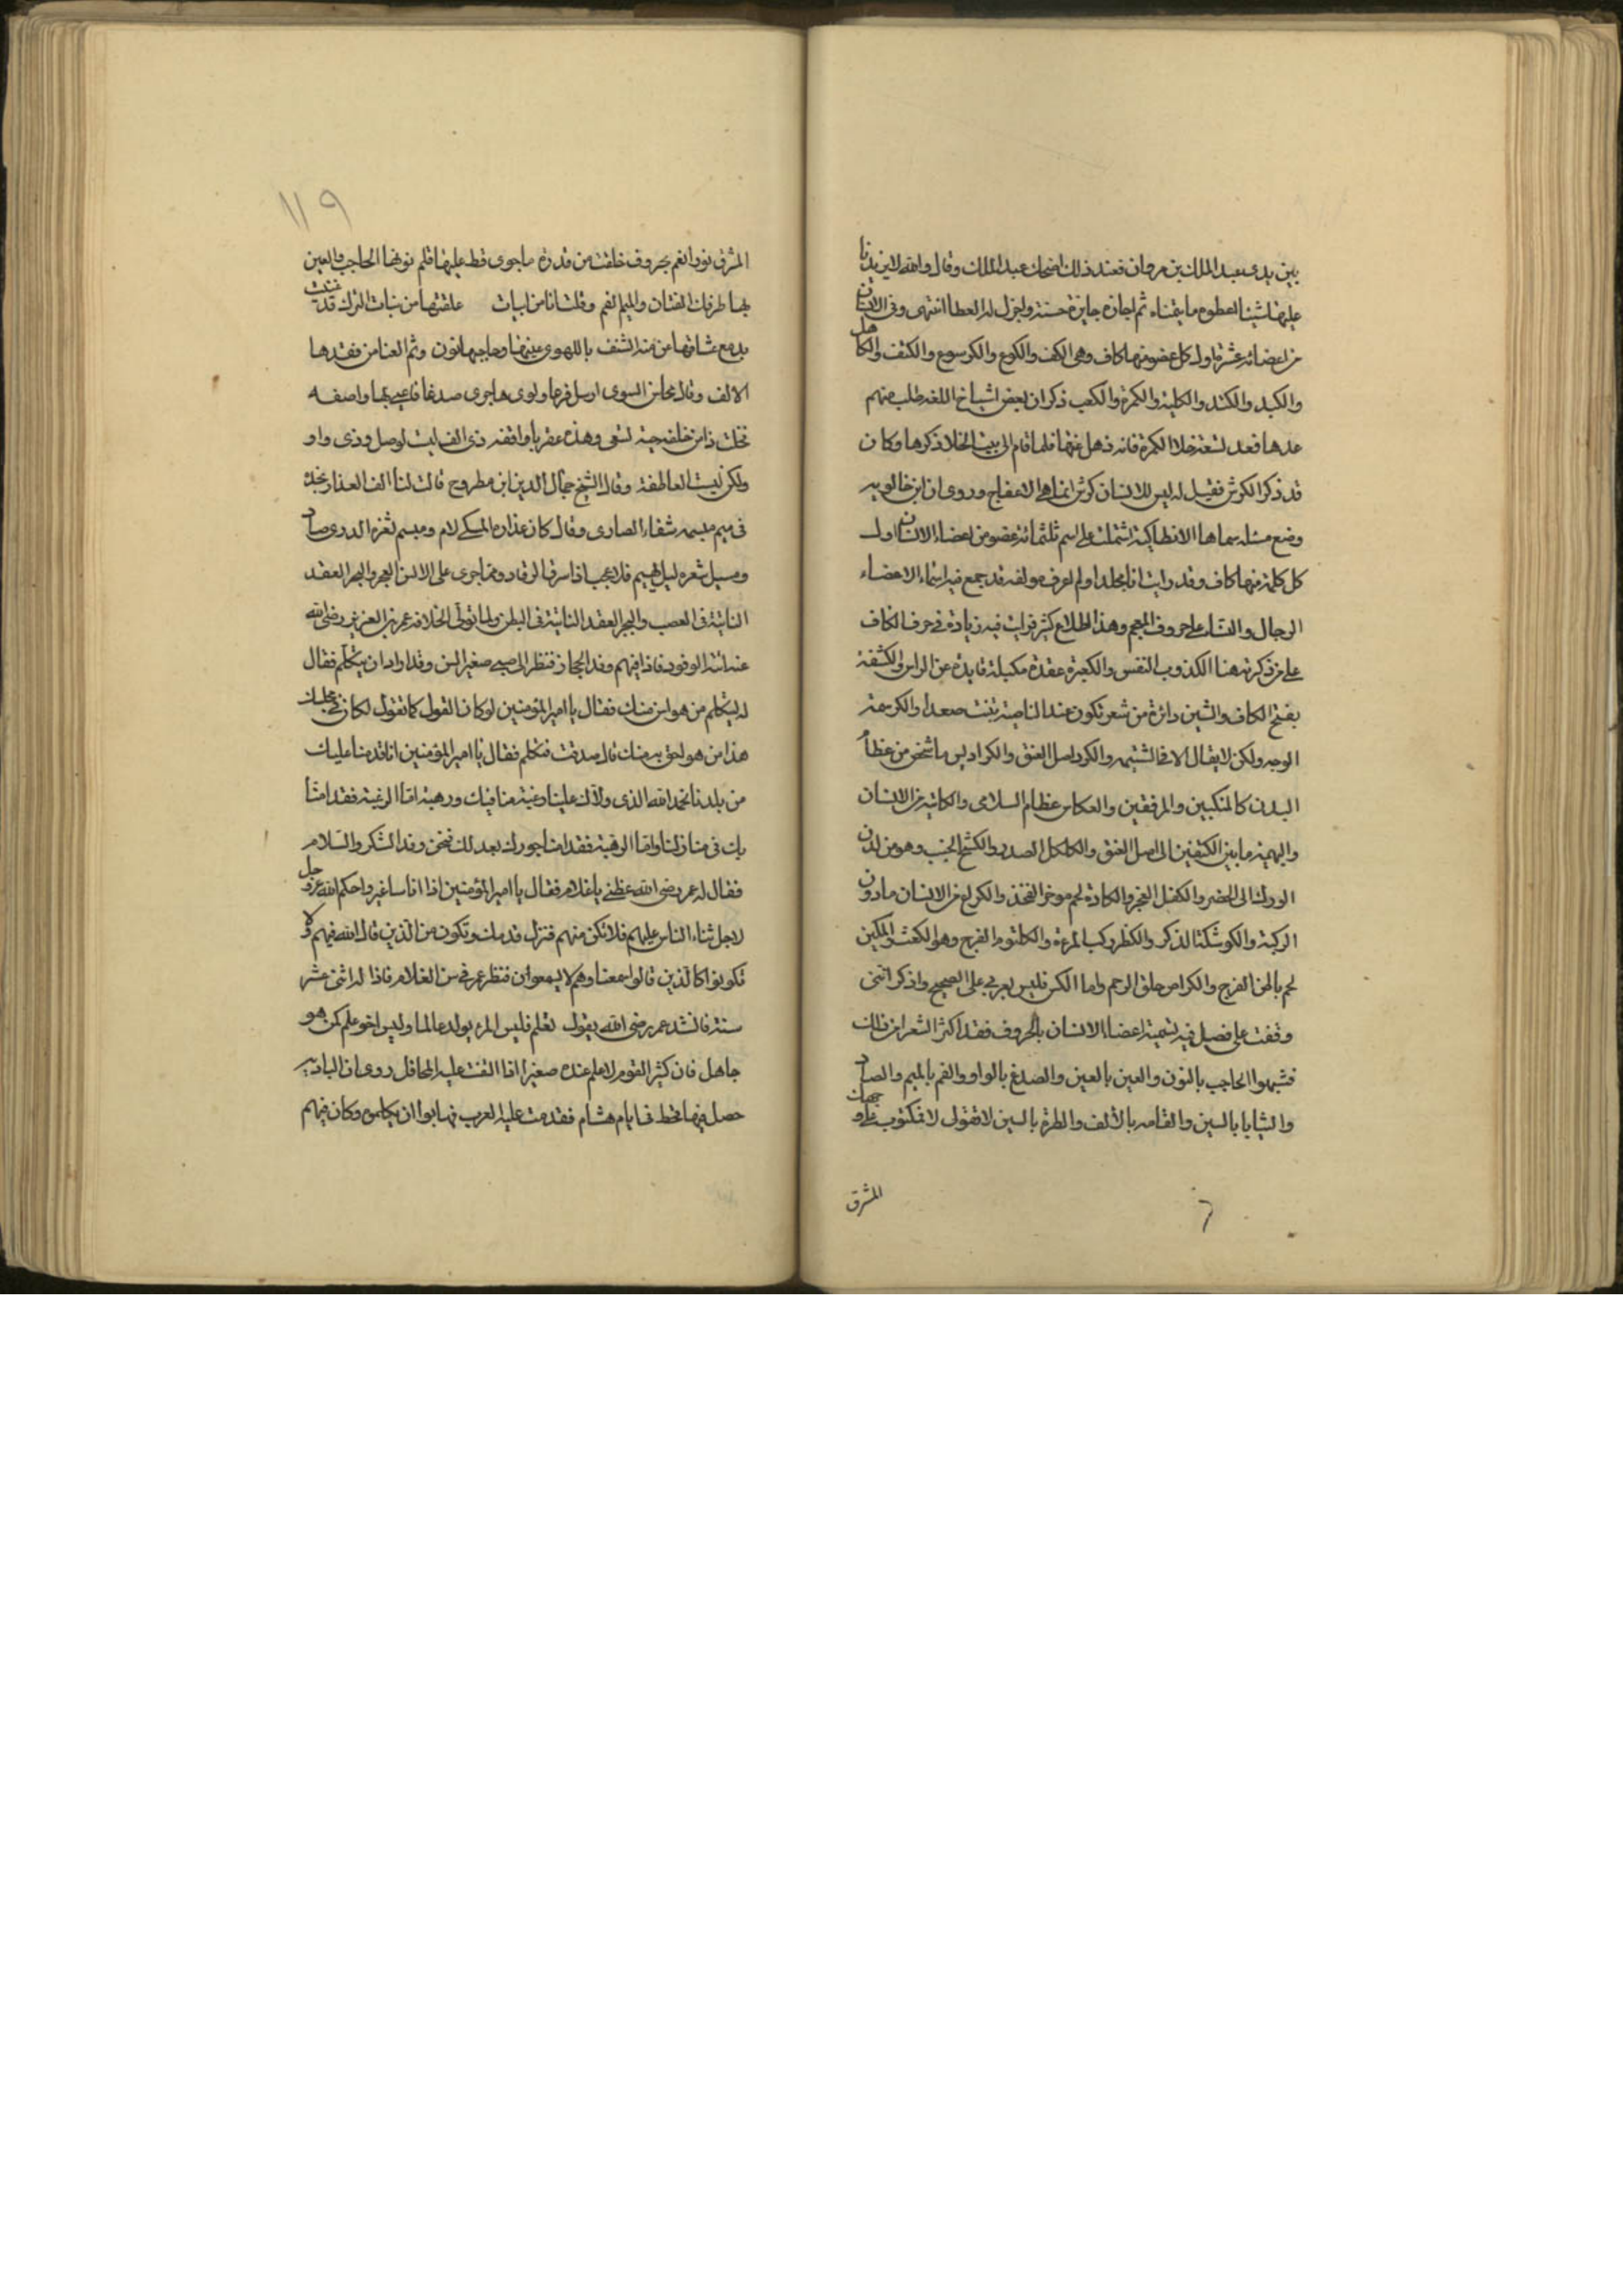 بين يدى عبد الملك بن مروان فعند ذلك اضحك عبد الملك وقال والله لا يزيدنا
عليها شيئا اعطوه ما يتمناه ثم اجازه جايزة حسنة واجزل له العطا انتهى وفى الانسان
من اعضائه عشرة اول كل عضو منها كاف وهى الكف والكوع والكرسوع والكتف والكاهل
والكبد والكتد والكلية والكمرة والكعب ذكر ان بعض اشياخ اللغة طلب منهم
عدها فعد تسعة خلا الكمرة فانه ذهل عنها فلما قام الى بيت الخلا ذكرها وكان
قد ذكر الكرش فقيل له ليس للانسان كرش انما هى الاعفاج وروى ان ابن خالويه
وضع مسئلة سماها الانطاكية اشتملت على اسم ثلثمائة عضو من اعضاء الانسان اول
كل كلمة منها كاف وقد رايت انا مجلدا ولم اعرف مولفه قد جمع فيه اسماء الاعضاء
الرجال والنساء على حروف المعجم وهذا اطلاع كثير فرايت فيه زيادة فى حرف الكاف
على من ذكرته هنا الكذوب النفس والكعبرة عقدة مكبلة عن الراس والكشفة
بفتح الكاف والشين دائرة من شعر تكون عند الناصية تنبت صعدا والكرسمة
الوجه ولكن لا يقال الا فى الشتيمة والكرد اصل العنق والكراديس ما شخص من عظام
البدن كالمنكبين والمرفقين والعكاس عظام السلامى والكاثبة من الانسان
والبهيمة ما بين الكتفين الى اصل العنق والكلكل الصدر والكشح الجنب وهو من لدن
الورك الى الخصر والكفل العجز والكادة لحم موخر الفخذ والكراع من الانسان ما دون
الركبة والكوشلة الذكر والكظر ركب المرءة والكلثوم الفرج وهو الكعثب والمكين
لحم باطن الفرج والكراض حلق الرحم واما الكس فليس بعربى على الصحيح واذكر اننى
وقفت على فصيل فيه تسمية اعضا الانسان بالحروف فقد اكثر الشعرا من ذلك
فشبهوا الحاجب بالنون والعين بالعين والصدغ بالواو والفم بالميم والصاد
والثنايا بالسين والقامة بالالف والطرة بالسين لا تقولى لا فمكتوب على وجهك
المشرق
١١٩
المشرق نور انعم بحروف خلقت من قدرة ما جرى قط عليها قلم نونها الحاجب والعين
بها طرفك الفتان والميم الفم وقلت انا من ابيات علقتها من بنات الترك قد غنيت
بدمع عشاقها عن منة الشنف باللهوى عينها وحاجبها نون وثم العنا من فقدها
الالف وقال محاسن الشوى ارسل فرعا ولوى هاجرى صدغا فاعيى بهما واصفه
فخلت ذا من خلفه حية تسعى وهذه عقربا واقفه ذى الف ليست لوصل وذى واو
ولكن ليست العاطفة وقال الشيخ جمال الدين ابن مطروح قالت لنا الف العذار بخده
فى ميم مبسمه شفاء الصادى وقال كان عذاره المسكى لام ومبسم ثغره الدرى صاد
ومسبل شعره ليل بهيم فلا عجب اذا سرق الرقاد ومما جرى على الالسن العجر والبجر العقد
الناتية فى العصب والبجر العقد الناتية فى البطن ولما تولى الخلافة عمر بن العزيز رضى الله
عنه اتته الوفود فاذا فيهم وفد الحجاز فنظر الى صبى صغير السن وقد اراد ان يتكلم فقال
له ليتكلم من هو اسن منك فقال يا امير المؤمنين لو كان القول كما تقول لكان فى مجلسك
هذا من هو احق به منك قال صدقت فتكلم فقال يا امير المؤمنين انا قدمنا عليك
من بلدنا نحمد الله الذى ولاك علينا رغبة منا فيك ورهبة اما الرغبة فقد امنا
بك فى منازلنا واما الرهبة فقد امنا جورك بعدلك فنحن وفد الشكر والسلام
فقال له عمر رضى الله عظنى يا غلام فقال يا امير المؤمنين اذا اناسا غرهم احكم الله عز وجل
لاجل ثناء الناس عليهم فلا تكن منهم فتزل قدمك وتكون من الذين قال الله فيهم ولا
تكونوا كالذين قالوا سمعنا وهم لا يسمعوان فنظر عمر فى سن الغلام فاذا له اثنى عشر
سنة فانشد عمر رضى الله يقول تعلم فليس المرء يولد عالما وليس اخو علم كمن هو
جاهل فان كبير القوم لا علم عنده صغير اذا التفت عليه المحافل روى ان البادية
حصل فيها قحط فى ايام هشام فقدمت عليه العرب فهابوا ان يكلموه وكان فيهم